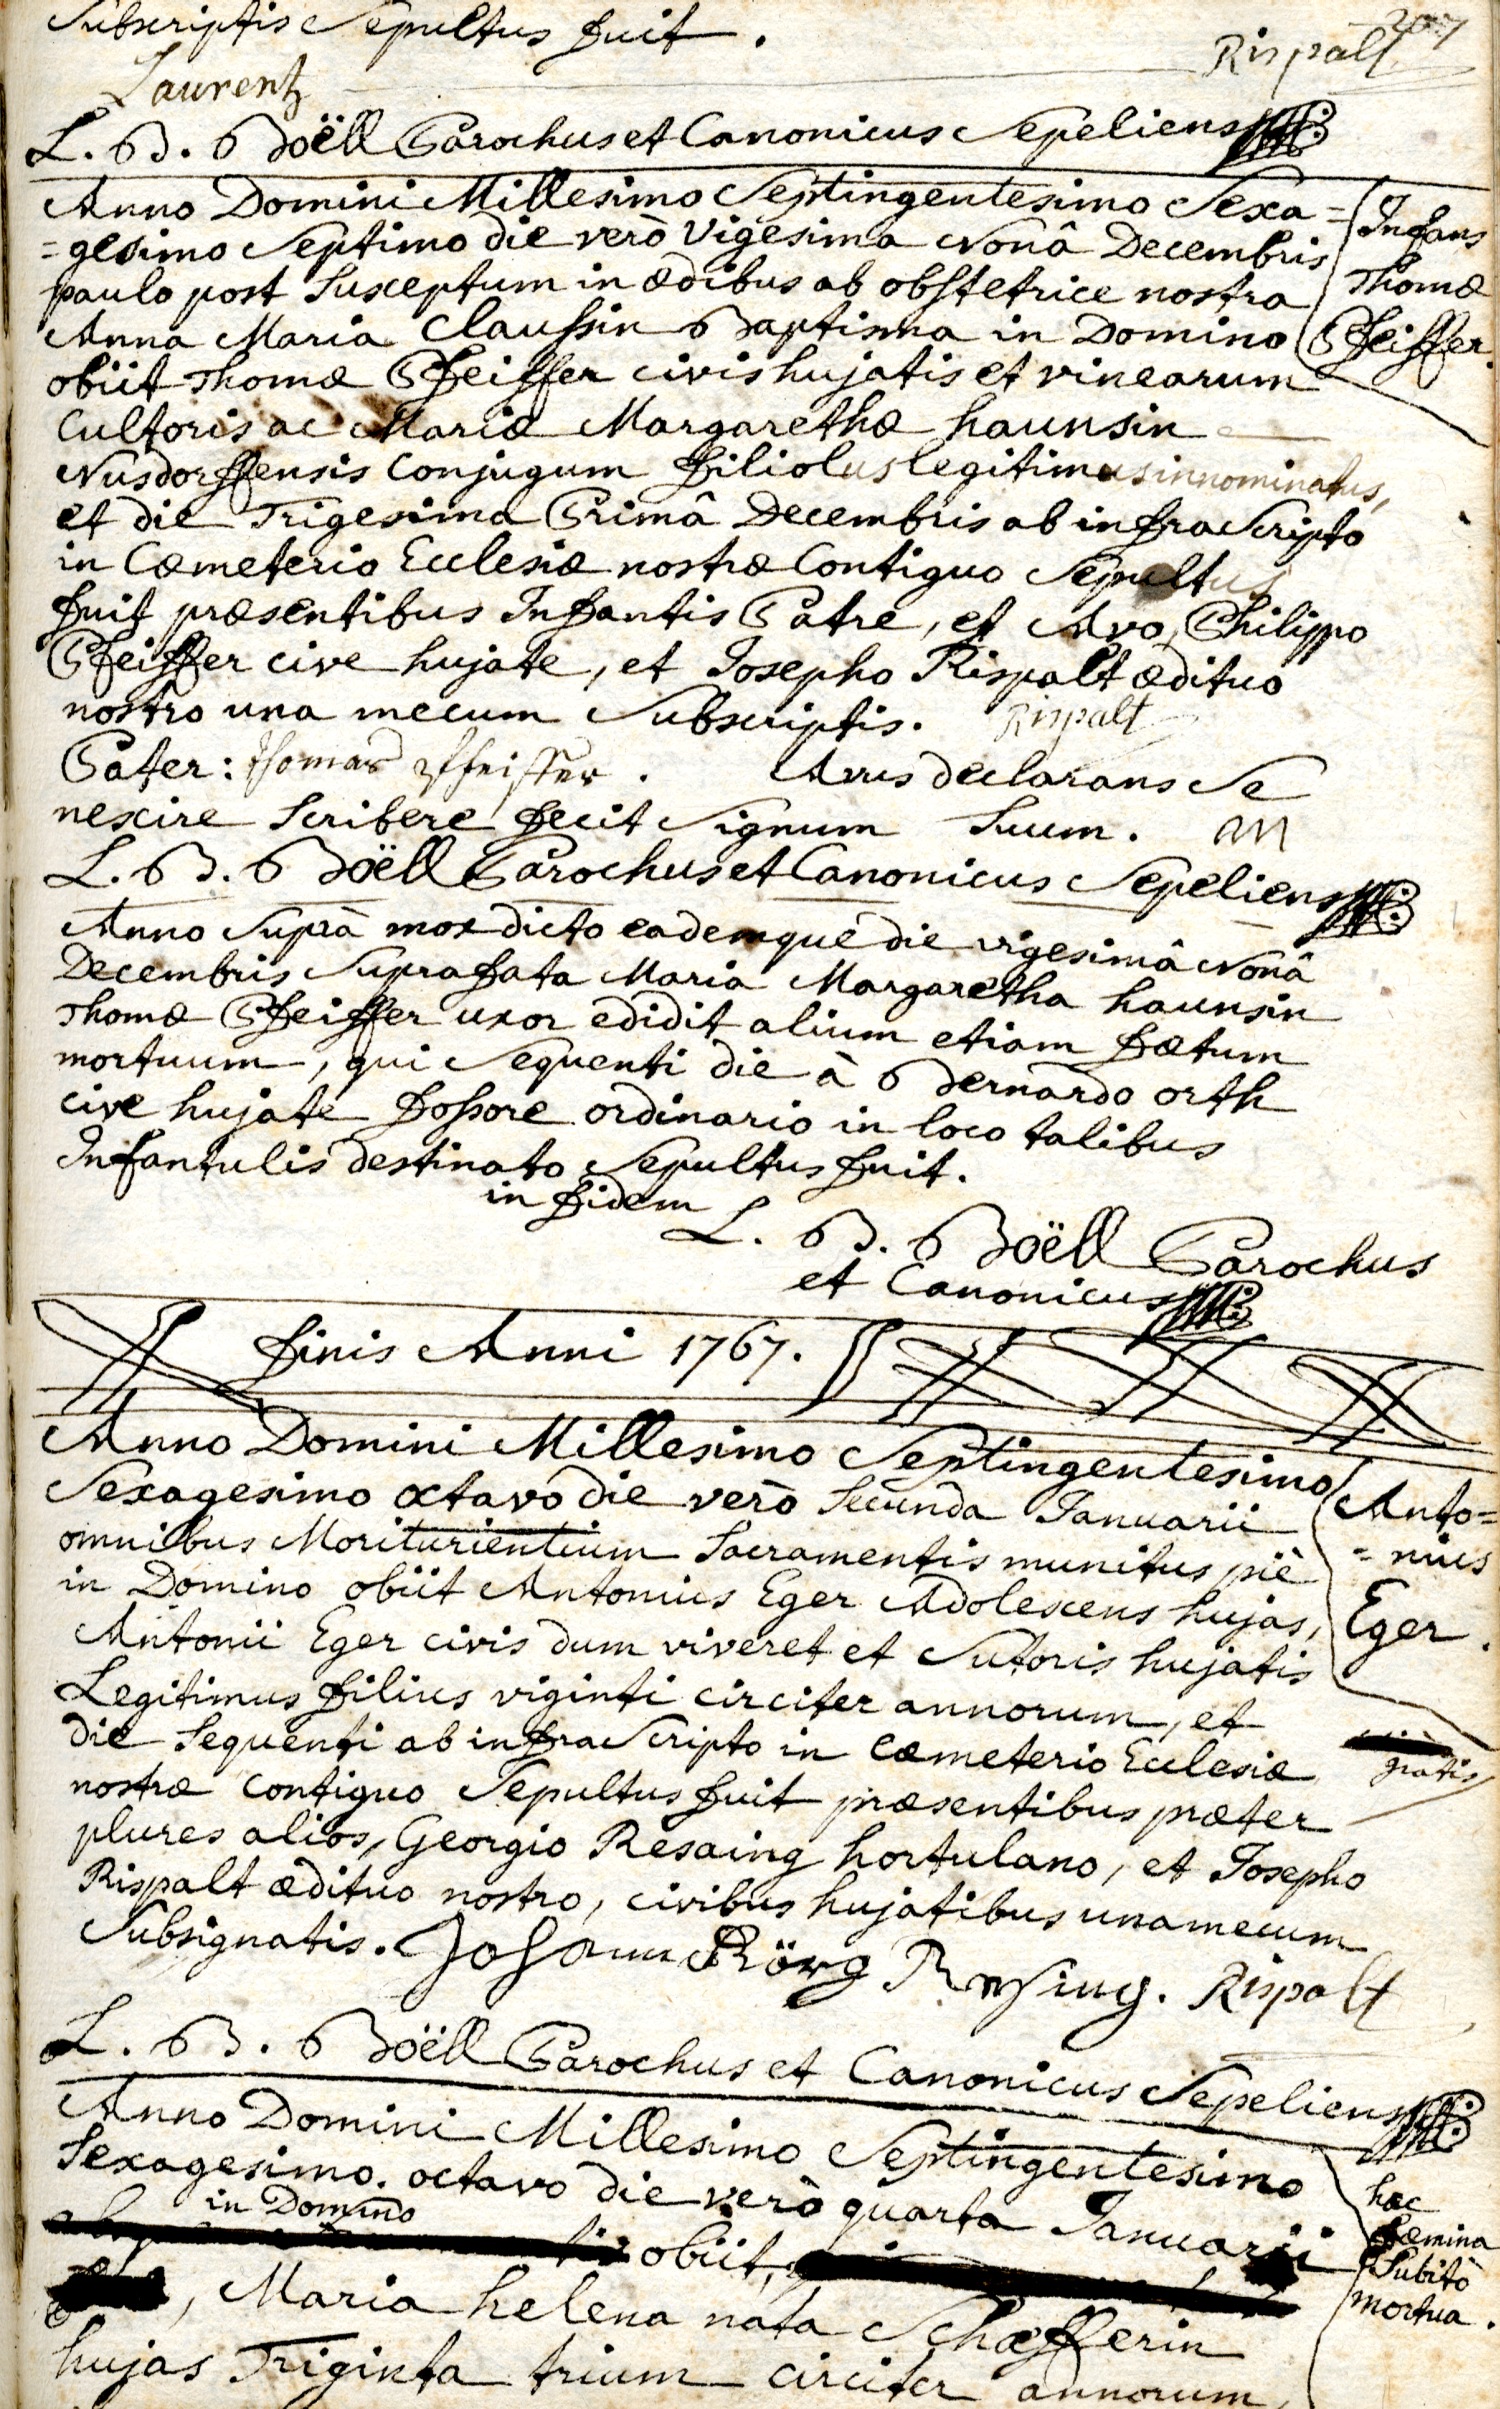 Subscriptis Sepultus fuit.
207
Rispalt
Laurentz
L. B. Boëll Parochus et Canonicus Sepeliens
Anno Domini Millesimo Septingentesimo Sexa=
=gesimo Septimo die verò Vigesima Nonâ Decembris
paulo post Susceptum in ædibus ab obstetrice nostra
Anna Maria Claussin Baptisma in Domino
obiit Thomæ Pfeiffer civis hujatis et vinearum
Cultoris ac Mariæ Margarethæ haunsin
Nusdorffensis Conjugum filiolus legitimus innominatus,
et die Trigesima Primâ Decembris ab infra Scripto
in Cæmeterio Ecclesiæ nostræ Contiguo Sepultus
fuit præsentibus Infantis Patre, et Avo, Philippo
Pfeiffer cive hujate, et Josepho Rispalt ædituo
nostro una mecum Subscriptis. Rispalt
Pater: Thomas Pfeiffer. Avus declarans Se
nescire Scribere fecit Signum Suum. M
L. B. Boëll Parochus et Canonicus Sepeliens
Infans
Thomæ
Pfeiffer.
Anno Suprà mox dicto eademque die vigesimâ Nonâ
Decembris Suprafata Maria Margaretha haunsin
Thomæ Pfeiffer uxor edidit alium etiam fætum
mortuum, qui Sequenti die à Bernardo orth
cive hujate fossore ordinario in loco talibus
Infantulis destinato Sepultus fuit.
in fidem
L. B. Boëll Parochus
et Canonicus
finis Anni 1767.
Anno Domini Millesimo Septingentesimo
Sexagesimo octavo die verò Secunda Januarii
omnibus Moriturientium Sacramentis munitus piè
in Domino obiit Antonius Eger Adolescens hujas,
Antonii Eger civis dum viveret et Sutoris hujatis
Legitimus filius viginti circiter annorum, et
die Sequenti ab infra Scripto in Cæmeterio Ecclesiæ
nostræ Contiguo Sepultus fuit præsentibus præter
plures alios, Georgio Resaing hortulano, et Josepho
Rispalt ædituo nostro, civibus hujatibus una mecum
Subsignatis. Johann Görg Resing. Rispalt
L. B. Boëll Parochus et Canonicus Sepeliens
Anto=
=nius
Eger.
gratis
Anno Domini Millesimo Septingentesimo
Sexagesimo. octavo die verò quarta Januarii
in Domino
obiit,
, Maria helena nata Schæfferin
hujas Triginta trium circiter annorum,
hæc
fæmina
Subitò
mortua.